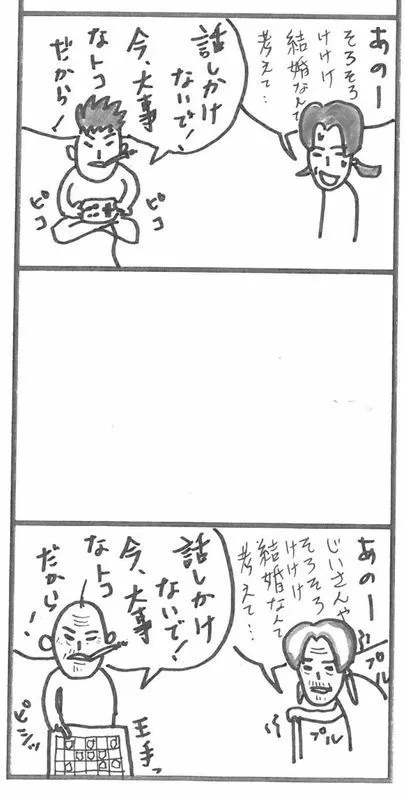 あのー
そろそろ
けけけ
結婚なんて
考えて…
話しかけ
ないで!
今、大事
なトコ
だから!
ピコ
ピコ
あのー
じいさんや
そろそろ
けけけ
結婚なんて
考えて…
プル
プル
話しかけ
ないで!
今、大事
なトコ
だから!
王手っ
ピシッ